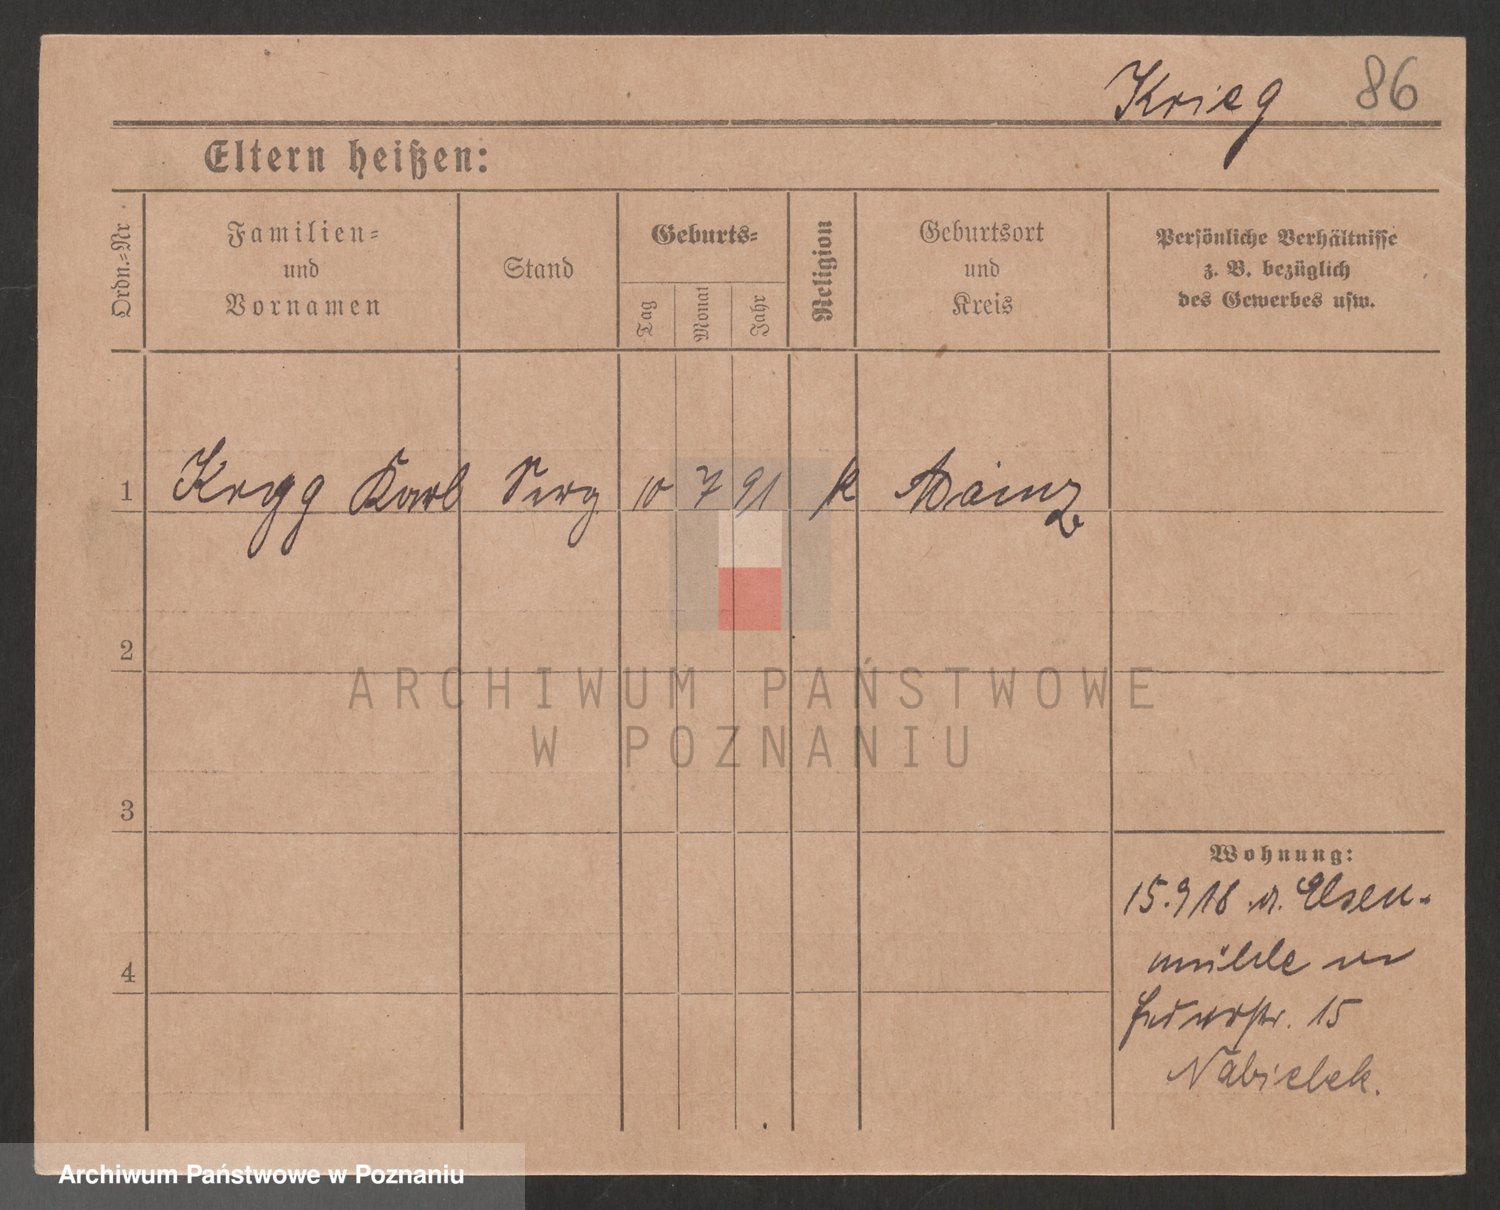 Krieg 86
Eltern heißen:
Ordn.-Nr
Familien-
und
Vornamen
Stand
Geburts-
Tag
Monat
Jahr
Religion
Geburtsort
und
Kreis
Persönliche Verhältnisse
z. B. bezüglich
des Gewerbes usw.
1 Karl 10 7 91 k Mainz
2
ARCHIWUM PAŃSTWOWE
W POZNANIU
3
Wohnung:
15. 9 18 Elsen-
mühle
4
15
Nabielek.
Archiwum Państwowe w Poznaniu